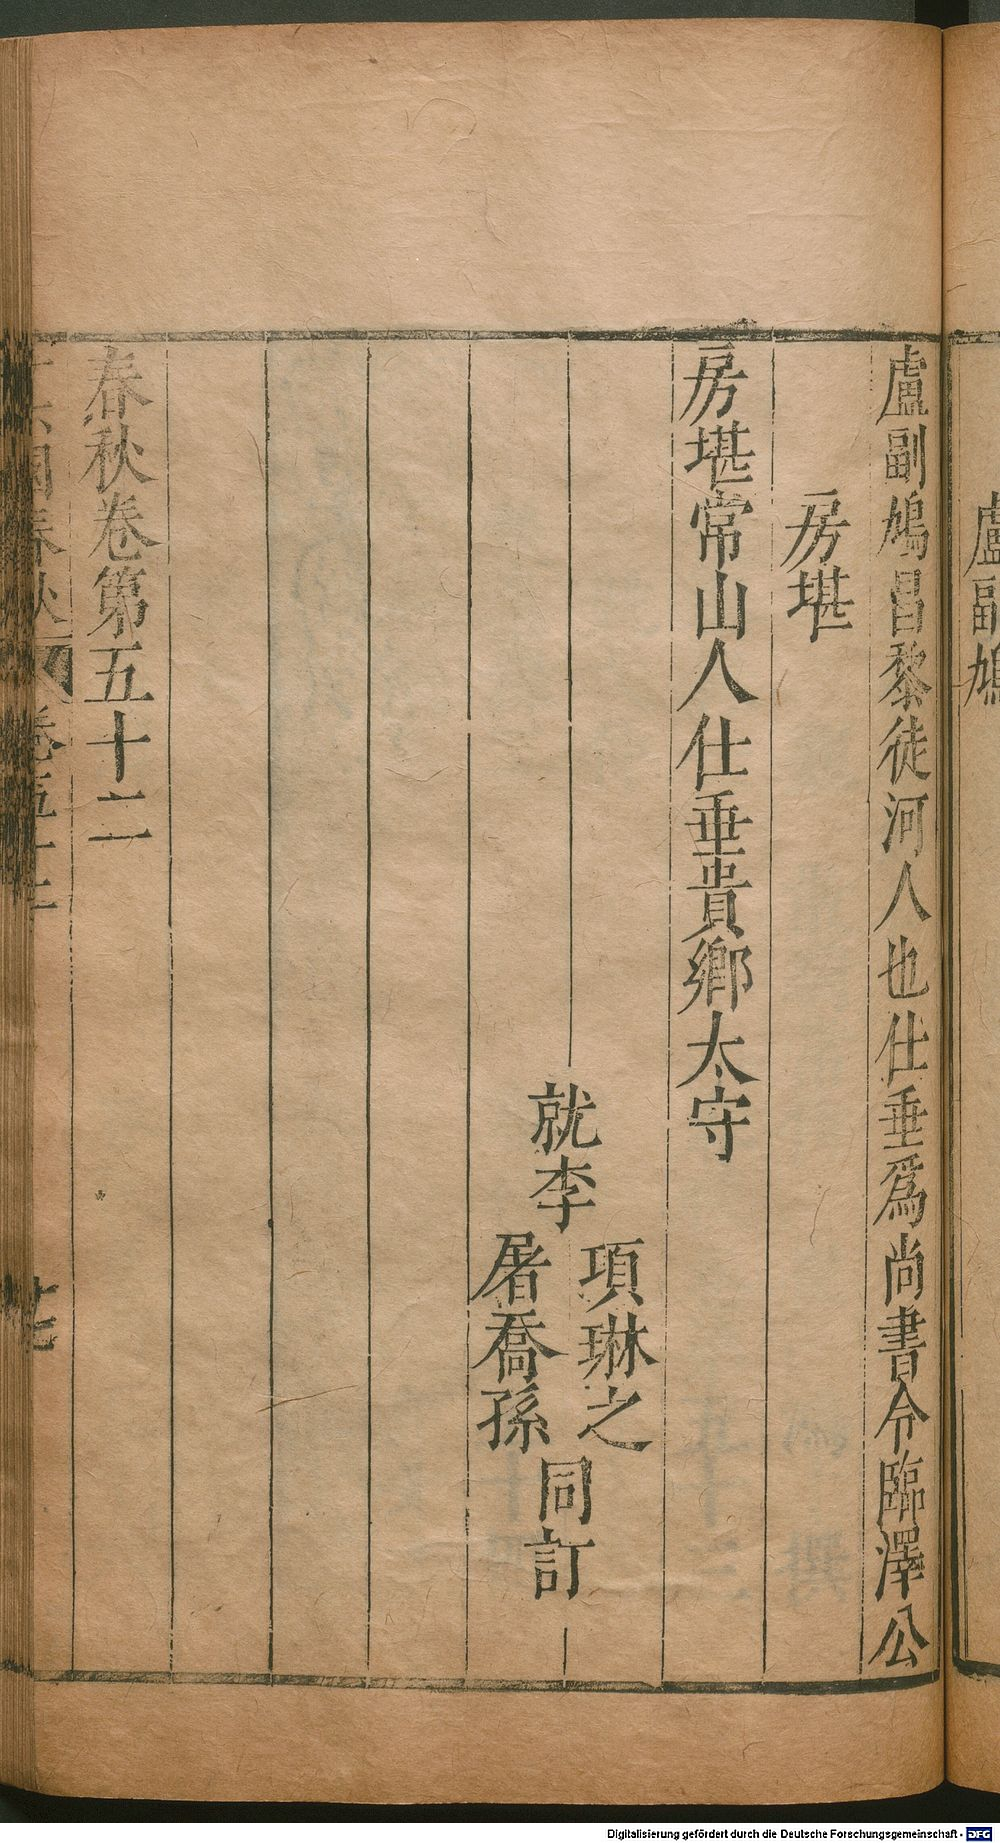 盧副鳩
盧副鳩昌黎徒河人也仕垂爲尚書令臨澤公
房堪
房堪常山人仕垂貴鄉太守
就李
項琳之
屠喬孫
同訂
春秋卷第五十二
國春秋
卷五十二
Digitalisierung gefördert durch die Deutsche Forschungsgemeinschaft - DFG